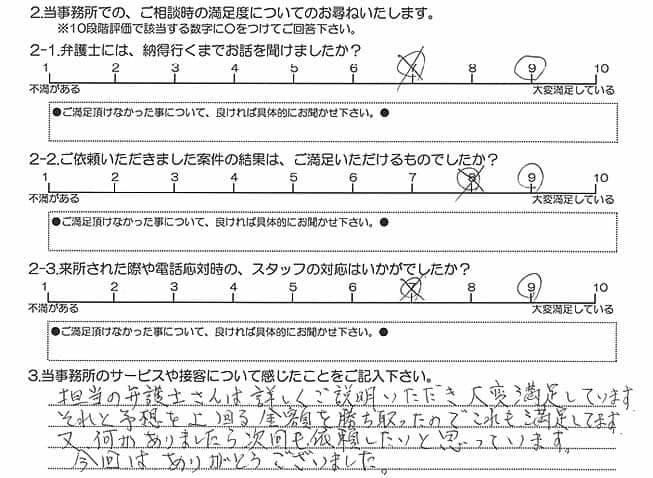 2.当事務所での、ご相談時の満足度についてのお尋ねいたします。
※10段階評価で該当する数字に○をつけてご回答下さい。
2-1.弁護士には、納得行くまでお話を聞けましたか?
1 2 3 4 5 6 7 8 9 10
不満がある 大変満足している
●ご満足頂けなかった事について、良ければ具体的にお聞かせ下さい。●
2-2.ご依頼いただきました案件の結果は、ご満足いただけるものでしたか?
1 2 3 4 5 6 7 8 9 10
不満がある 大変満足している
●ご満足頂けなかった事について、良ければ具体的にお聞かせ下さい。●
2-3.来所された際や電話応対時の、スタッフの対応はいかがでしたか?
1 2 3 4 5 6 7 8 9 10
不満がある 大変満足している
●ご満足頂けなかった事について、良ければ具体的にお聞かせ下さい。●
3.当事務所のサービスや接客について感じたことをご記入下さい。
担当の弁護士さんは詳しくご説明いただき大変満足しています
それと予想を上回る金額を勝ち取ったのでこれも満足してます
又何かありましたら次回も依頼したいと思っています。
今回はありがとうございました。